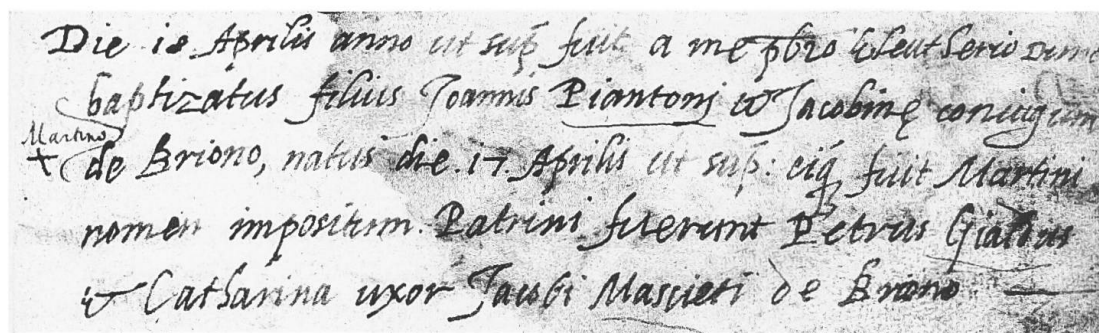 Die 18 Aprilis anno ut sup̃ fuit a me p̃bro Eleutherio
baptizatus filius Joannis Piantoni & Jacobinę coniugum
Martino
+ de Briono, natus die 17 Aprilis ut sup̃: eiq̃ fuit Martini
nomen impositum. Patrini fuerunt Petrus
& Catharina uxor Jacobi de Briono